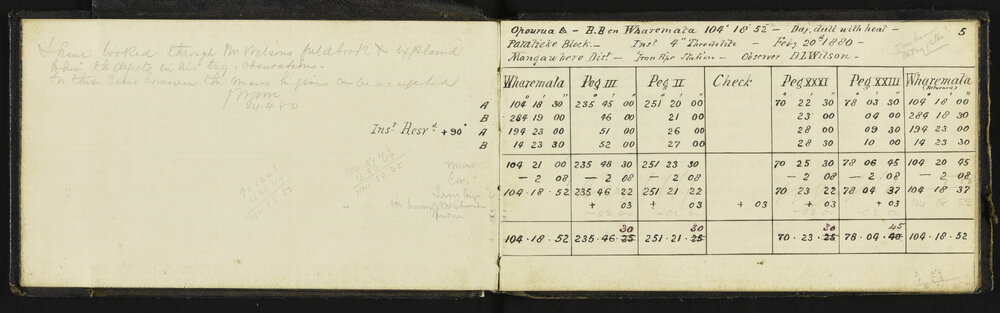 I have looked through Mr Wilsons fieldbook & explained
to him the defects in his trig. observations.
In these cases however the means he gives can be accepted
24.4.80
Opourua △ - B.B on Wharemata 104° 18' 52" - Day, dull with heat -
5
Block - Inst 4" Theodolite - Feby 20th 1880 -
Mangawhero Dist - Iron Pipe Station - Observer D. Wilson -
Wharemata Peg III Peg II Check Peg XXXI Peg XXIII Wharemata (Returned)
A 104° 18' 30" 235° 45' 00" 251° 20' 00" 70° 22' 30" 78° 03' 30" 104° 18' 00"
B 284 19 00 46 00 21 00 23 00 04 00 284 18 30
Inst Resrd +90° A 194 23 00 51 00 26 00 28 00 09 30 194 23 00
B 14 23 30 52 00 27 00 28 30 10 00 14 23 30
104 21 00 235 48 30 251 23 30 70 25 30 78 06 45 104 20 45
- 2 08 - 2 08 - 2 08 - 2 08 - 2 08 - 2 08
104 · 18 · 52 235 46 22 251 21 22 70 23 22 78 04 37 104 18 37
+ 03 + 03 + 03 + 03 + 03 104 18 52
30 30 30 45
104 · 18 · 52 235 · 46 · 25 251 · 21 · 25 70 · 23 · 25 78 · 04 · 40 104 · 18 · 52